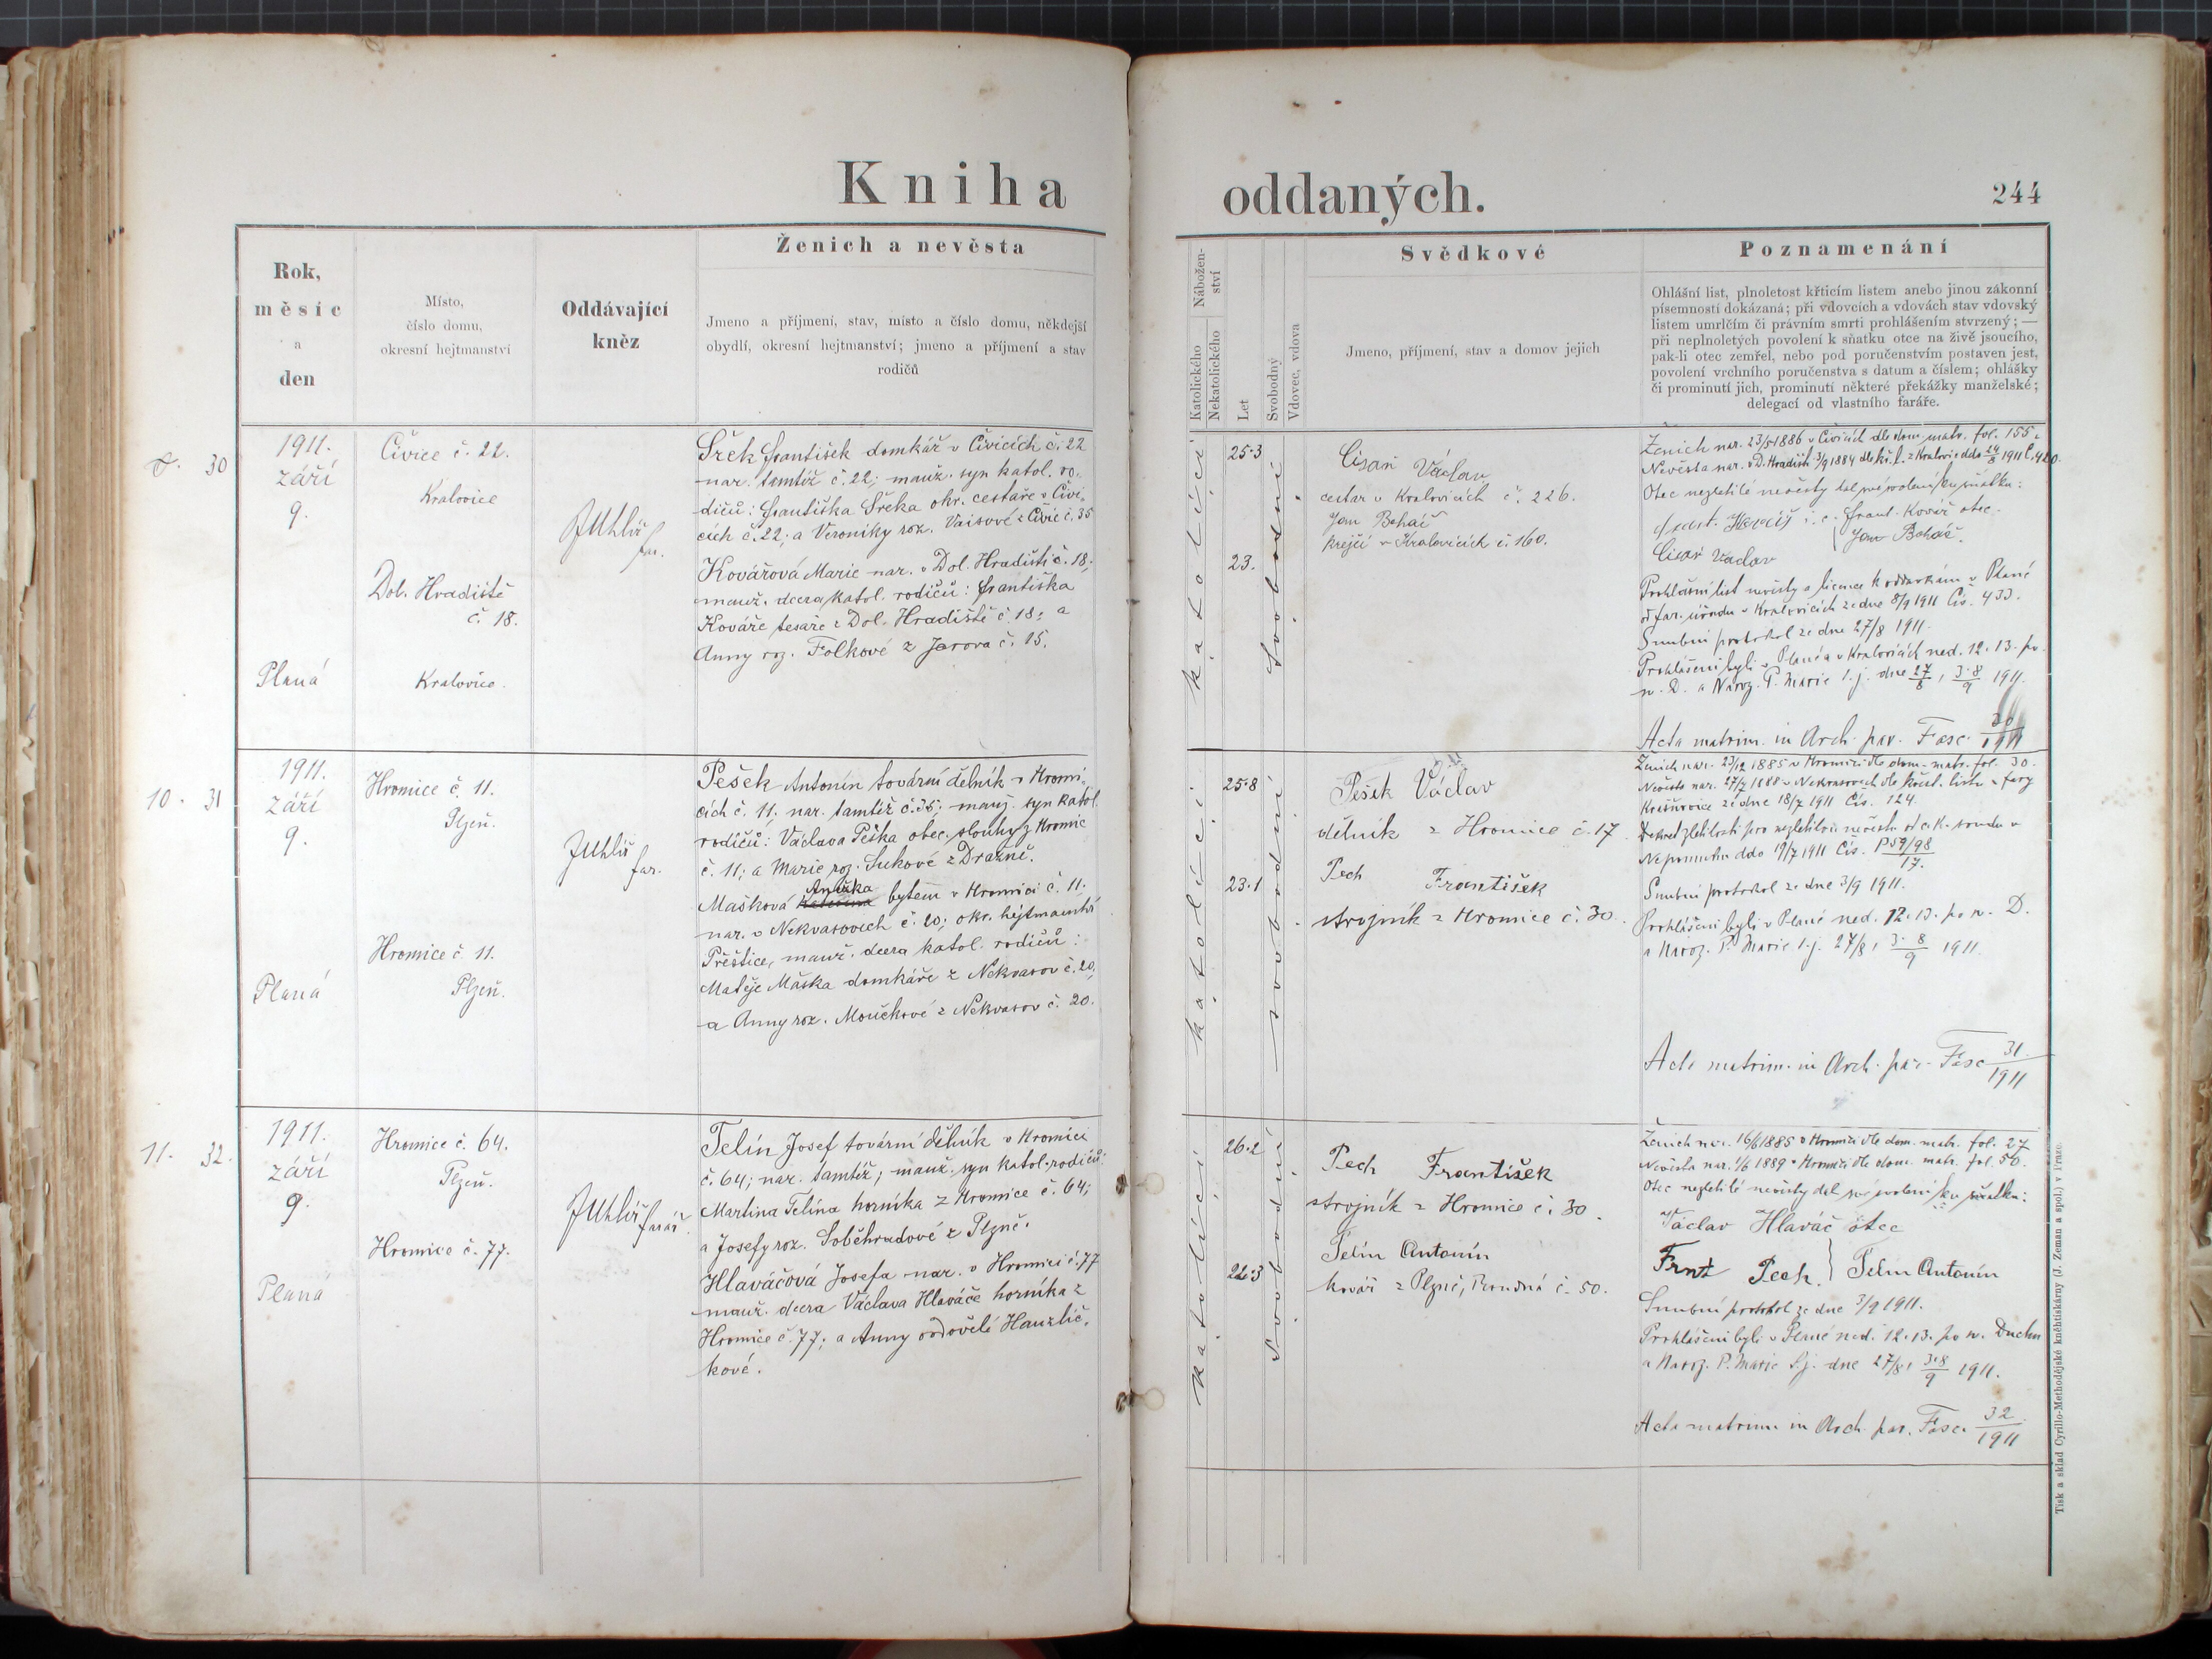 Kniha
oddaných.
244
Rok,
měsíc
a
den
Místo,
číslo domu,
okresní hejtmanství
Oddávající
kněz
Ženich a nevěsta
Jmeno a příjmení, stav, místo a číslo domu, někdejší
obydlí, okresní hejtmanství; jmeno a příjmení a stav
rodičů
Nábožen-
ství
Katolického
Nekatolického
Let
Svobodný
Vdovec, vdova
Svědkové
Jmeno, příjmení, stav a domov jejich
Poznamenání
Ohlášní list, plnoletost křticím listem anebo jinou zákonní
písemností dokázaná; při vdovcích a vdovách stav vdovský
listem umrlčím či právním smrti prohlášením stvrzený; —
při neplnoletých povolení k sňatku otce na živě jsoucího,
pak-li otec zemřel, nebo pod poručenstvím postaven jest,
povolení vrchního poručenstva s datum a číslem; ohlášky
či prominutí jich, prominutí některé překážky manželské;
delegací od vlastního faráře.
30
1911.
září
9.
Planá
Čivice č. 22.
Kralovice
Dol. Hradiště
č. 18.
Kralovice.
JUhlíř
far.
Srček František domkář v Čivicích č. 22
nar. tamtéž č. 22; manž. syn katol. ro-
dičů: Františka Srčka okr. cestáře v Čivi-
cích č. 22; a Veroniky roz. Vaisové z Čivic č. 35
Kovářová Marie nar. v Dol. Hradišti č. 18;
manž. dcera katol. rodičů: Františka
Kováře tesaře z Dol. Hradiště č. 18; a
Anny roz. Folkové z Jarova č. 15.
katolíci
25·3
23.
svobodní
Cisař Václav
cestář v Kralovicích č. 226.
Jan Boháč
krejčí v Kralovicích č. 160.
Ženich nar. 23/5 1886 v Čivicích dle dom. matr. fol. 155.
Nevěsta nar. v D. Hradišti 3/9 1884 dle kř. l. z Kralovic ddo 24/8 1911 č. 420.
Otec nezletilé nevěsty dal své svolení ku sňatku:
Frant. Kovář otec.
Jan Boháč.
Cisař Václav
Prohlašní list nevěsty a licence k oddavkám v Plané
od far. úřadu v Kralovicích ze dne 8/9 1911 Čís. 433.
Snubní protokol ze dne 27/8 1911.
Prohlášeni byli v Plané a v Kralovicích ned. 12. 13. po
sv. D. a Naroz. P. Marie t. j. dne 27/8, 3·8/9 1911.
Acta matrim. in Arch. par. Fasc. 30/1911
10. 31
1911.
září
9.
Planá
Hromice č. 11.
Plzeň.
Hromice č. 11.
Plzeň.
JUhlíř
far.
Pešek Antonín tovární dělník v Hromi-
cích č. 11; nar. tamtéž č. 35; manž. syn katol.
rodičů: Václava Peška obec. sluhy z Hromic
č. 11; a Marie roz. Sukové z Dražně.
Anežka
Mašková bytem v Hromici č. 11.
nar. v Nekvasovech č. 20; okr. hejtmanství
Přeštice, manž. dcera katol. rodičů:
Matěje Maška domkáře z Nekvasov č. 20;
a Anny roz. Moučkové z Nekvasov č. 20.
katolíci
25·8
23·1
svobodní
Pešek Václav
dělník z Hromice č. 17
Pech František
strojník z Hromice č. 30.
Ženich nar. 23/12 1885 v Hromici dle dom. matr. fol. 30.
Nevěsta nar. 27/7 1888 v Nekvasovech dle křest. listu z fary
ze dne 18/7 1911 Čís. 124.
Dekret zletilosti pro nezletilou nevěstu od c. k. soudu v
Nepomuku ddo 19/7 1911 Čís. P 59/98
17.
Snubní protokol ze dne 3/9 1911.
Prohlášeni byli v Plané ned. 12. 13. po sv. D.
a Naroz. P. Marie t. j. 27/8, 3· 8/9 1911.
Acta matrim. in Arch. par. Fasc 31./1911
11. 32.
1911.
září
9.
Planá
Hromice č. 64.
Plzeň.
Hromice č. 77.
JUhlíř
farář.
Telín Josef tovární dělník v Hromici
č. 64; nar. tamtéž; manž. syn katol. rodičů:
Martina Telína horníka z Hromice č. 64;
a Josefy roz. Soběhradové z Plzně.
Hlaváčová Josefa nar. v Hromici č. 77
manž. dcera Václava Hlaváče horníka z
Hromice č. 77; a Anny ovdovělé Hanzlíč-
kové.
katolíci
26·2
22·3
svobodní
Pech František
strojník z Hromice č. 30.
Telín Antonín
kovář z Plzně, č. 50.
Ženich nar. 16/6 1885 v Hromici dle dom. matr. fol. 27
Nevěsta nar. 1/6 1889 v Hromici dle dom. matr. fol. 50.
Otec nezletilé nevěsty dal své svolení ku sňatku:
Václav Hlaváč otec
Frnt Pech. Telín Antonín
Snubní protokol ze dne 3/9 1911.
Prohlášeni byli v Plané ned. 12. 13. po sv. Duchu
a Naroz. P. Marie t. j. dne 27/8, 3·8/9 1911.
Acta matrim in Arch. par. Fasc. 32/1911
Tisk a sklad Cyrillo-Methodějské knihtiskárny (J. Zeman a spol.) v Praze.